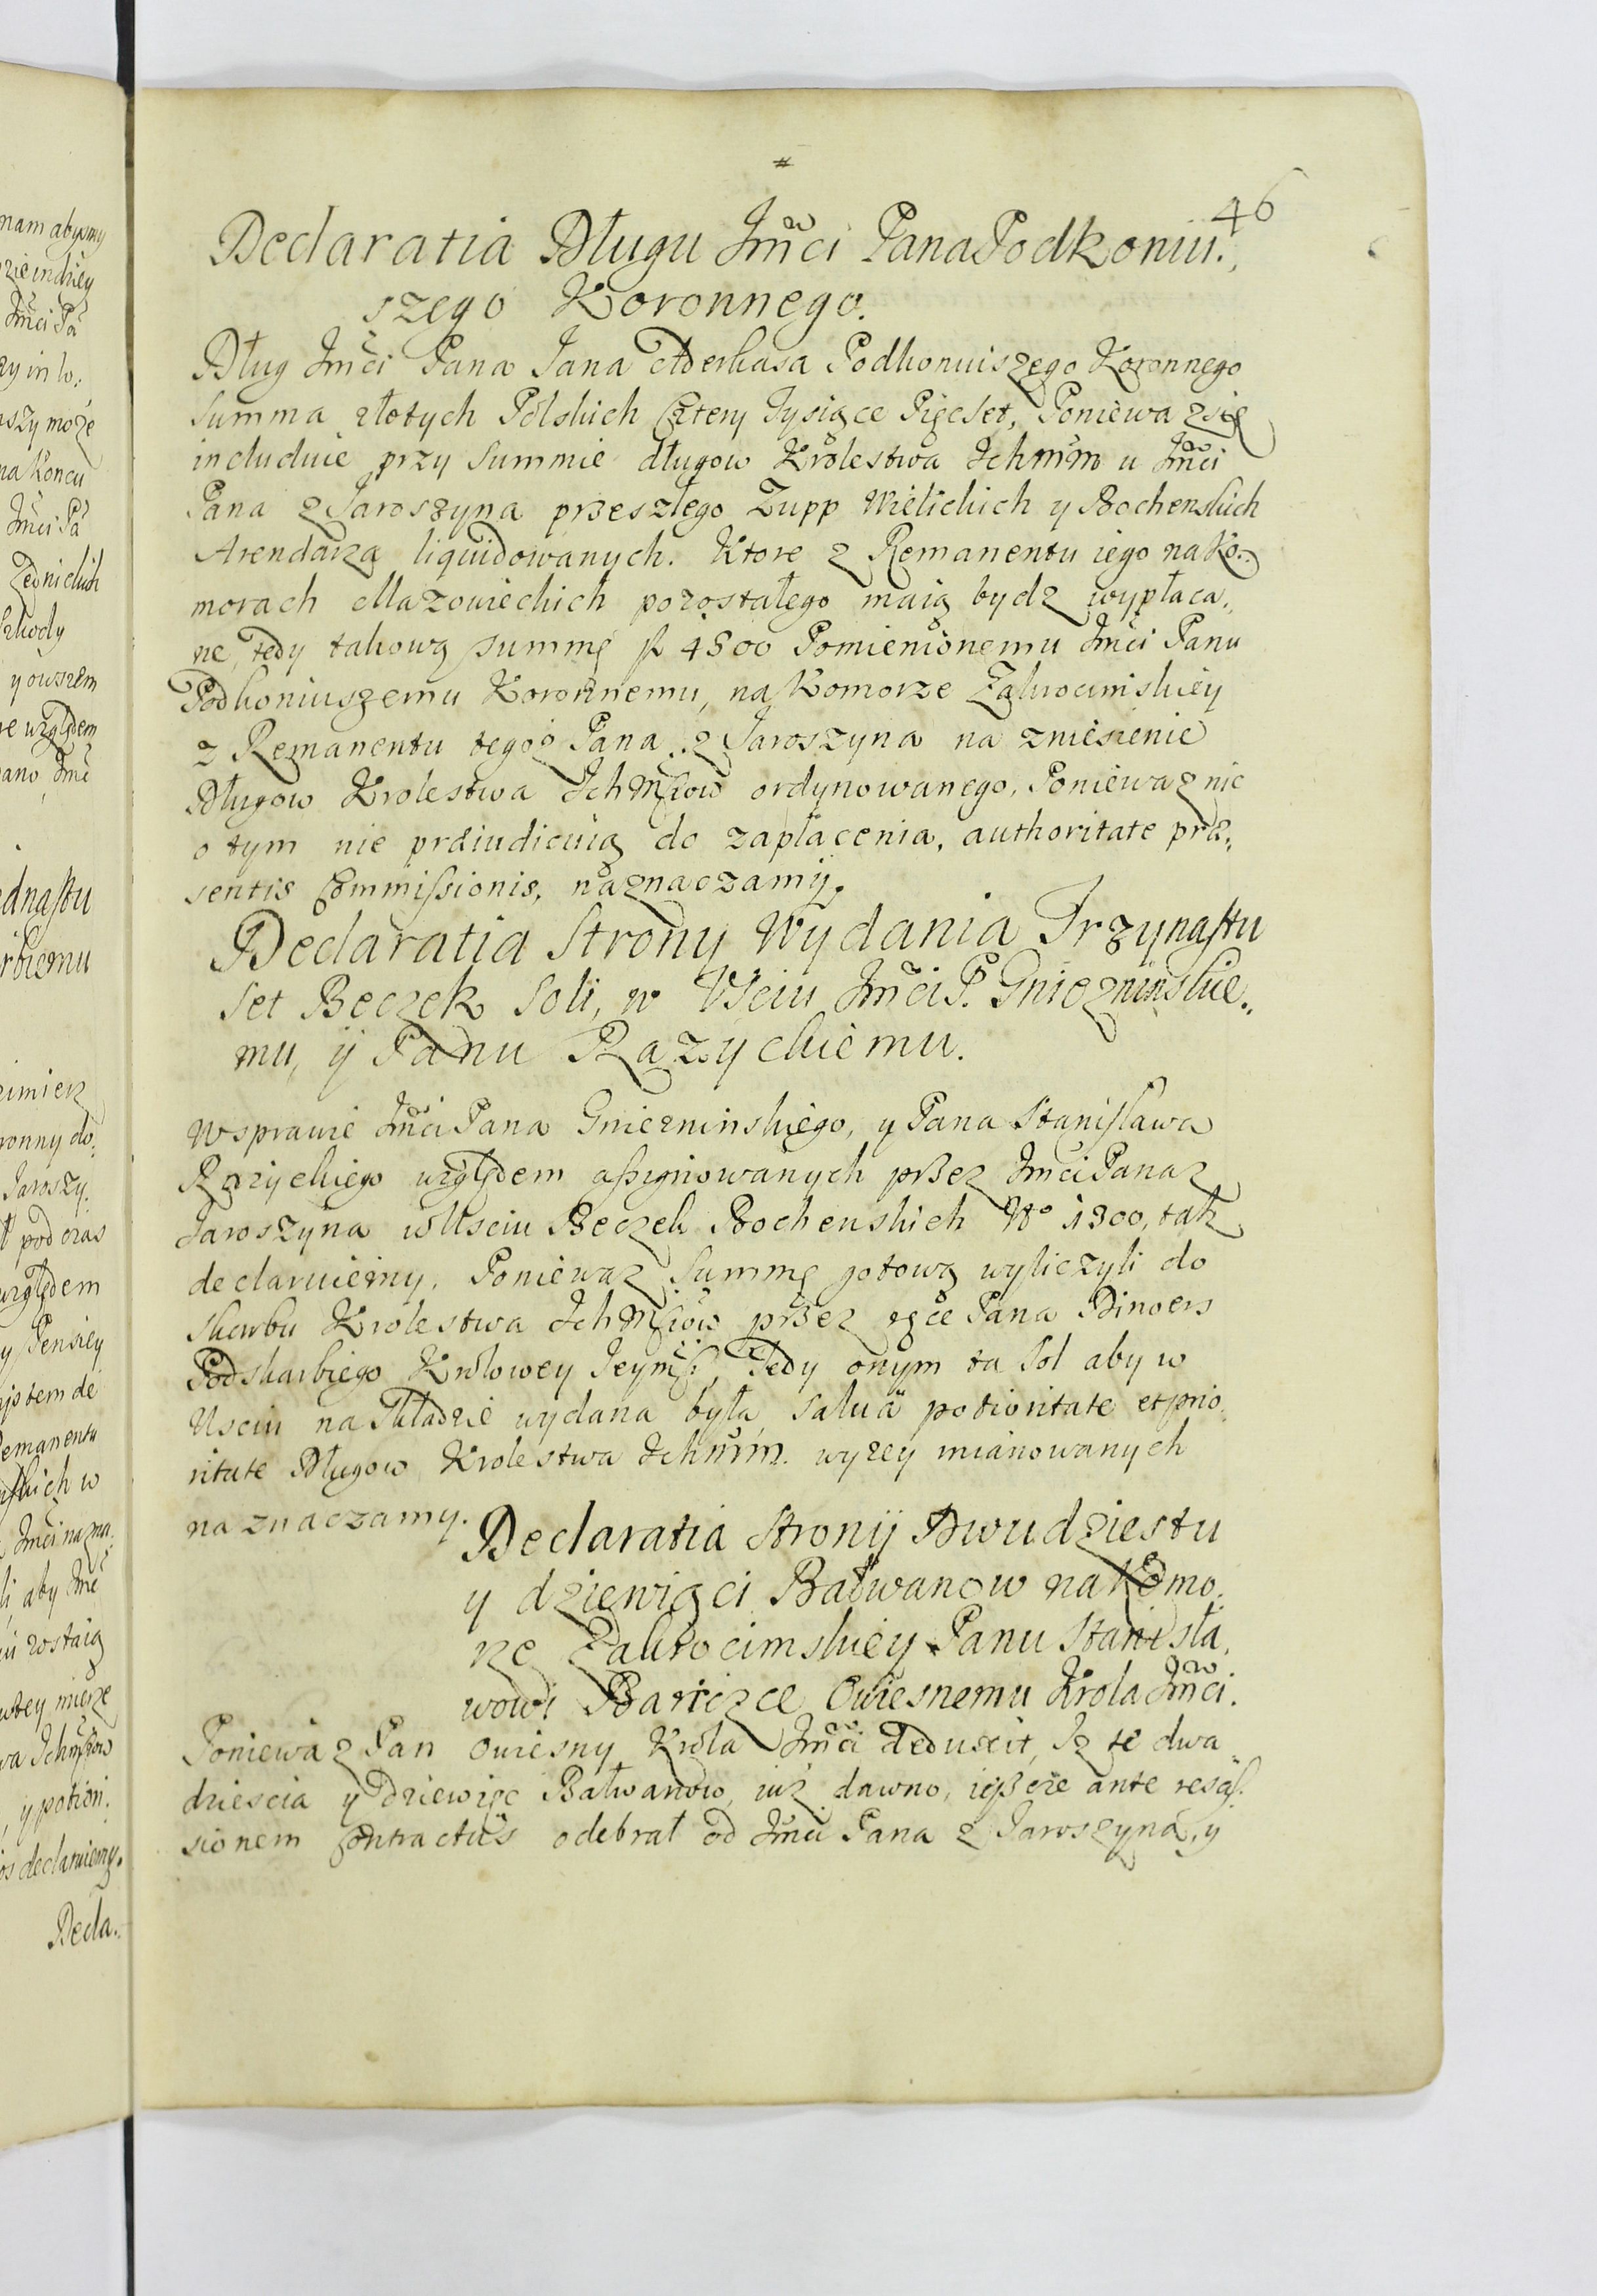 46
Declaratia Długu Jmci Pana Podkoniu.,
szego Koronnego.
Dług Jmci Pana Jana Aderkasa Podkoniuiszego Koronnego
Summa złotych Polskich Cztery Tysiące Pięcset, Poniewa z się
includuie przy Summie długow Krolestwa Ichmm u Jmci
Pana z Jaroszyna przeszłego Zupp Wielickich y Bochenskich
Arendarza liquidowanych. Ktore z Remanentu iego na Ko.,
morach Mazowieckich pozostałego maią bydz wypłaca.,
ne, tedy takową summę fl 4500 Pomienionemu Jmci Panu
Podkoniuszemu Koronnemu, na Komorze Zakrocimskiey
z Remanentu tegoż Pana z Jaroszyna na zniesienie
Długow Krolestwa Ichmsciow ordynowanego, Poniewaz nic
o tym nie præiudicuią do zapłacenia, authoritate præ.,
sentis Commissionis, naznaczamy.
Declaratia Strony Wydania Trzynastu
Set Beczek Soli, w Usciu Jmci P. Gniezninskie.,
mu, y Panu Razyckiemu.
W sprawie Jmci Pana Gniezninskiego, y Pana Stanisława
Razyckiego względem assignowanych przez Jmci Pana z
Jaroszyna w Usciu Beczek Bochenskich No 1300, tak
declaruiemy. Poniewaz Summę gotową wyliczyli do
Skarbu Krolestwa Ichmsciow przez ręce Pana Binoers
Podskarbiego Krolowey Jeymsci, Tedy onym ta Sol aby w
Usciu na Składzie wydana była, Salua potioritate et prio.
ritate Długow Krolestwa Ichmm. wyzey mianowanych
naznaczamy.
Declaratia Strony Dwudziestu
y dziewiąci Bałwanow na Komo.
rze Zakrocimskiey Panu Stanisła.
wowi Bariczce Owiesnemu Krola Jmci.
Poniewaz Pan Owiesny Krola Jmci deduxit, Iz te dwa
dziescia y Dziewięc Bałwanow, iuz dawno, ieszcze ante resciss.
sionem Contractus odebrał od Jmci Pana z Jaroszyna, y